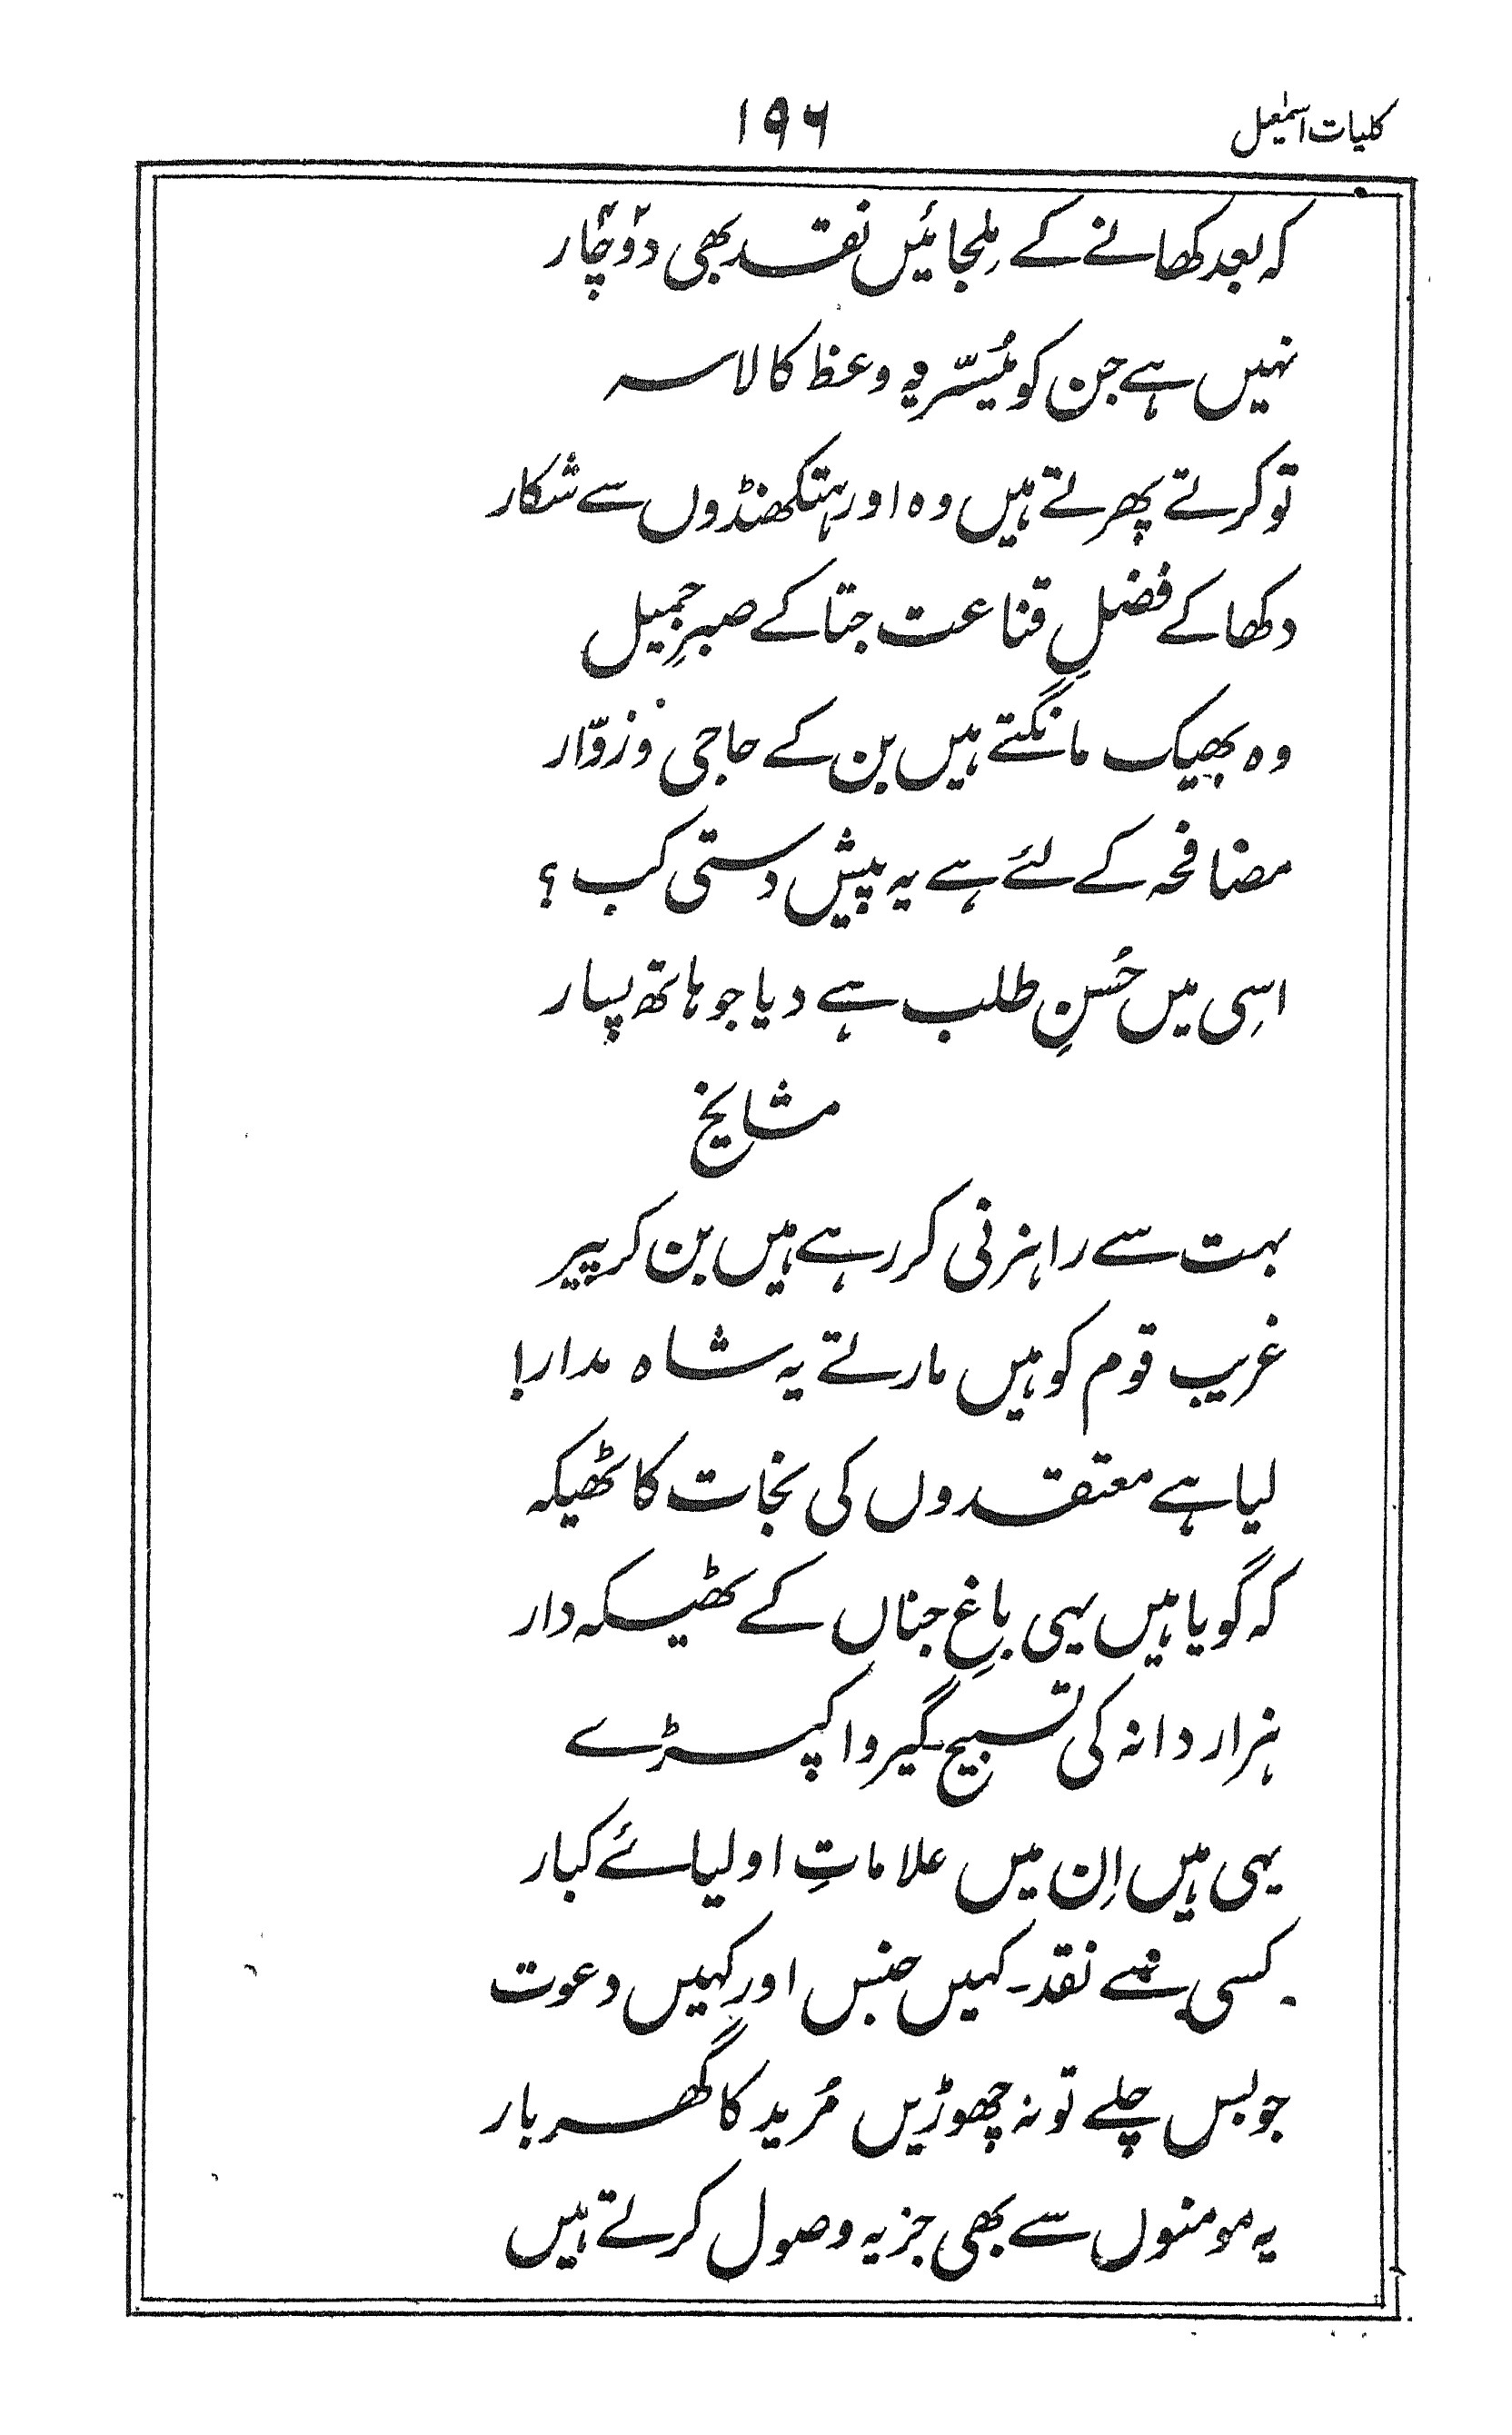 کلیات اسمٰعیل
۱۹۶
کہ بعد کھانے کے مِلجائیں نقد بھی دو چار
نہیں ہے جن کو مُیسّر یہ وعظ کا لاسہ
تو کرتے پھرتے ہیں وہ اور ہتکھنڈوں سے شکار
دکھا کے فضلِ قناعت جتا کے صبرِ جمیل
وہ بھیک مانگتے ہیں بن کے حاجی و زوّار
مضافحہ کے لئے ہے یہ پیش دستی کب ؟
اسِی میں حُسنِ طلب ہے دیا جو ہاتھ پسار
مشایخ
بہت سے راہزنی کر رہے ہیں بن کر پیر
غریب قوم کو ہیں مارتے یہ شاہ مدار!
لیا ہے معتقدوں کی نجات کا ٹھیکہ
کہ گویا ہیں یہی باغِ جناں کے ٹھیکہ دار
ہزار دانہ کی تسبیح۔ گیروا کپڑے
یہی ہیں اِن میں علاماتِ اولیائے کبار
کسی سے نقد۔ کہیں جنس اور کہیں دعوت
جو بس چلے تو نہ چھوڑیں مُرید کا گھر بار
یہ مومنوں سے بھی جزیہ وصول کرتے ہیں